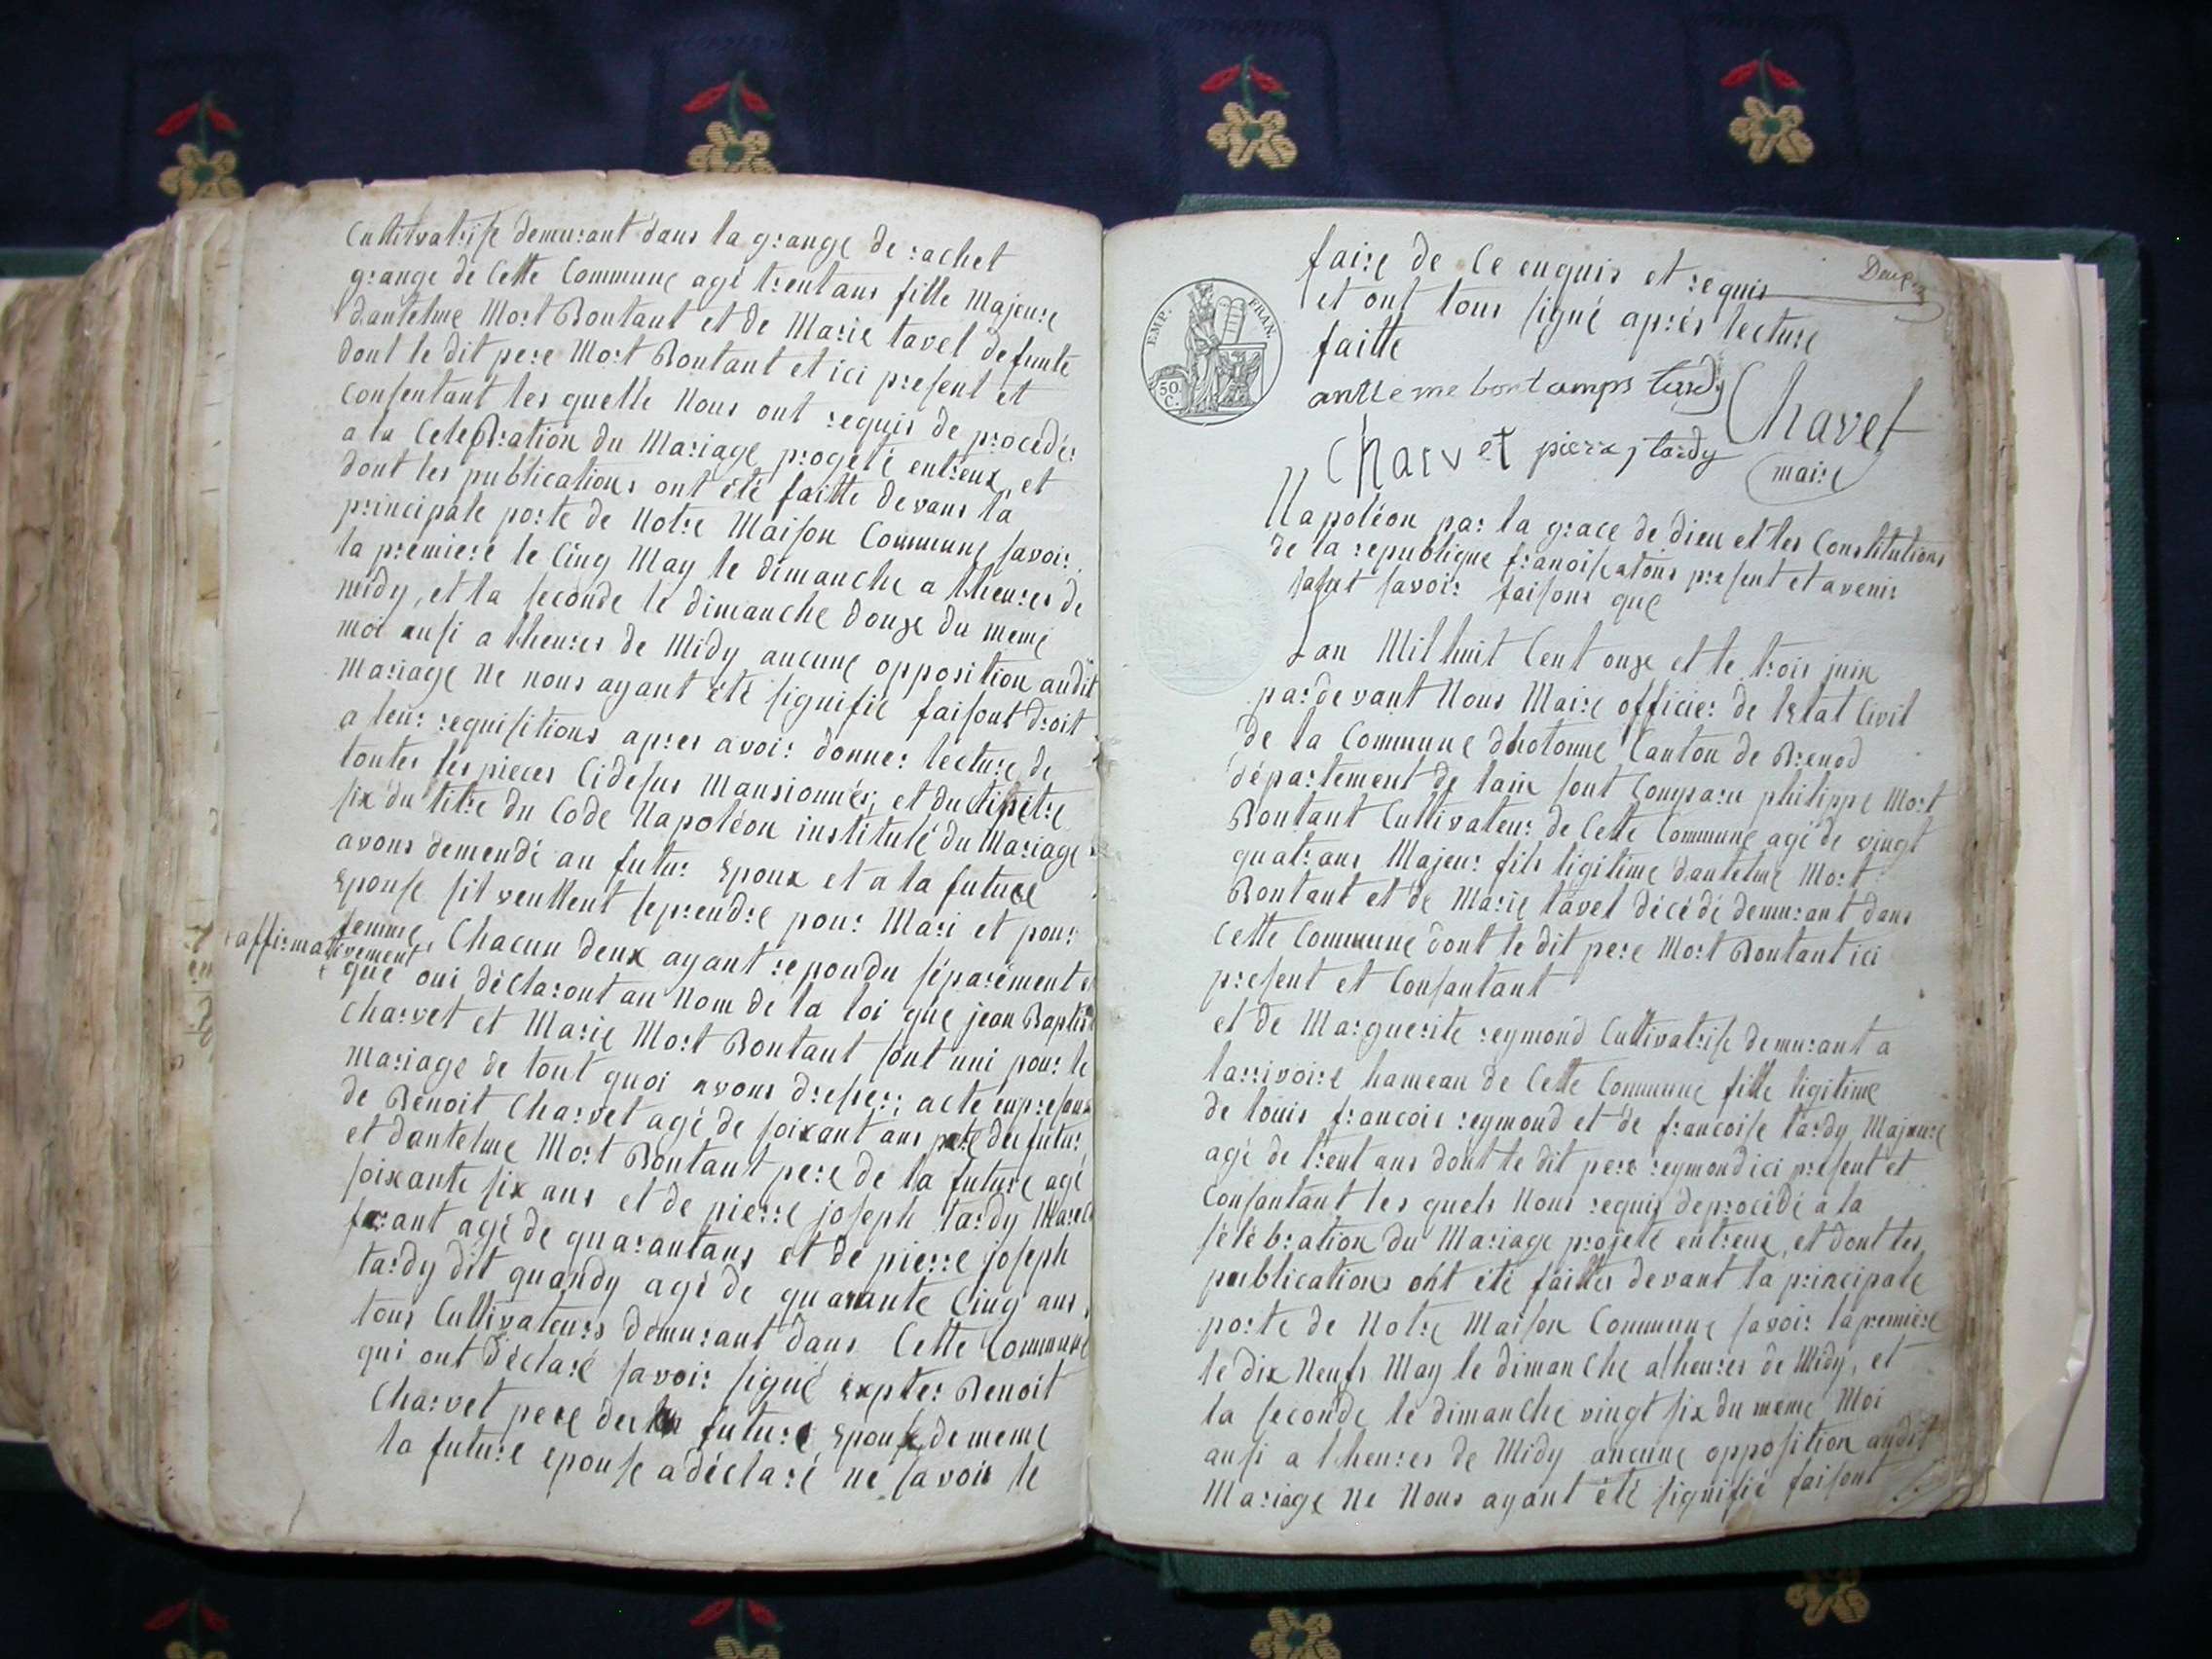 Cultivatrise demurant dans la grange de rachet
grange de Cette Commune agé trent ans fille Majeure
dantelme Mort Bontant et de Marie tavel defunte
dont le dit pere Mort Bontant et ici present et
Consentant les quelle Nous ont requis de procéder
a la Celebration du Mariage progeté entreux et
dont les publications ont été faitte devans la
principale porte de Notre Maison Commune savoir
la premiere le Cinq May le dimanche a lheures de
midy, et la seconde le dimanche douze du meme
moi ausi a lheures de Midy aucune opposition audit
Mariage Ne nous ayant été signifié faisont droit
a leur requisitions apres avoir donner lecture de
toutes les pieces Cidesus Mansionnés, et du
six du titre du Code Napoléon institulé du Mariage
avons demendé au futur Epoux et a la future
Epouse sil veullent seprendre pour Mari et pour
femme Chacun deux ayant repondu séparément et
+ affirmativement
+ que oui déclaront au Nom de la loi que jean Baptiste
Charvet et Marie Mort Bontant sont uni pour le
mariage de tout quoi avons dresser acte enpresans
de Benoit Charvet agé de soixant ans pere du futur
et dantelme Mort Bontant pere de la future agé
soixante six ans et de pierre joseph tardy
agé de quarantans et de pierre joseph
tardy dit quandy agé de quarante Cinq ans
tous Cultivateurs demurant dans Cette Commune
qui ont déclaré savoir signé Expter Benoit
Charvet pere du future Epoux de meme
la future epouse a déclaré ne savoir le
faire de Ce enquis et requis
et ont tous signé aprés lecture
faitte
EMP. FRAN.
50 C.
antleme bontamps tardy Chavet
Charvet pierre j tardy maire
Napoléon par la grace de dieu et les Constitutions
de la republique franoise atous present et avenir
salut savoir faisons que
Lan Mil huit Cent onze et le trois juin
pardevant Nous Maire officier de lEtat Civil
de la Commune dhotonne Canton de Brenod
département de lain sont Comparu philippe Mort
Bontant Cultivateur de Cette Commune agé de vingt
quatr ans Majeur fils ligitime dantelme Mort
Bontant et de Marie tavel décédé demurant dans
Cette Commune dont le dit pere Mort Bontant ici
present et Consantant
et de Marguerite reymond Cultivatrise demurant a
larrivoire hameau de Cette Commune fille ligitime
de louis francois reymond et de francoise tardy Majeure
agé de trent ans dont le dit pere reymond ici present et
Consantant les quels Nous requis deprocédé a la
sélébration du Mariage projeté entreux, et dont les
publications ont été faittes devant la principale
porte de Notre Maison Commune savoir la premiere
le dix Neufs May le dimanche a lheures de Midy, et
la seconde le dimanche vingt six du meme Moi
ausi a lheures de Midy aucune opposition audit
Mariage Ne Nous ayant été signifié faisont